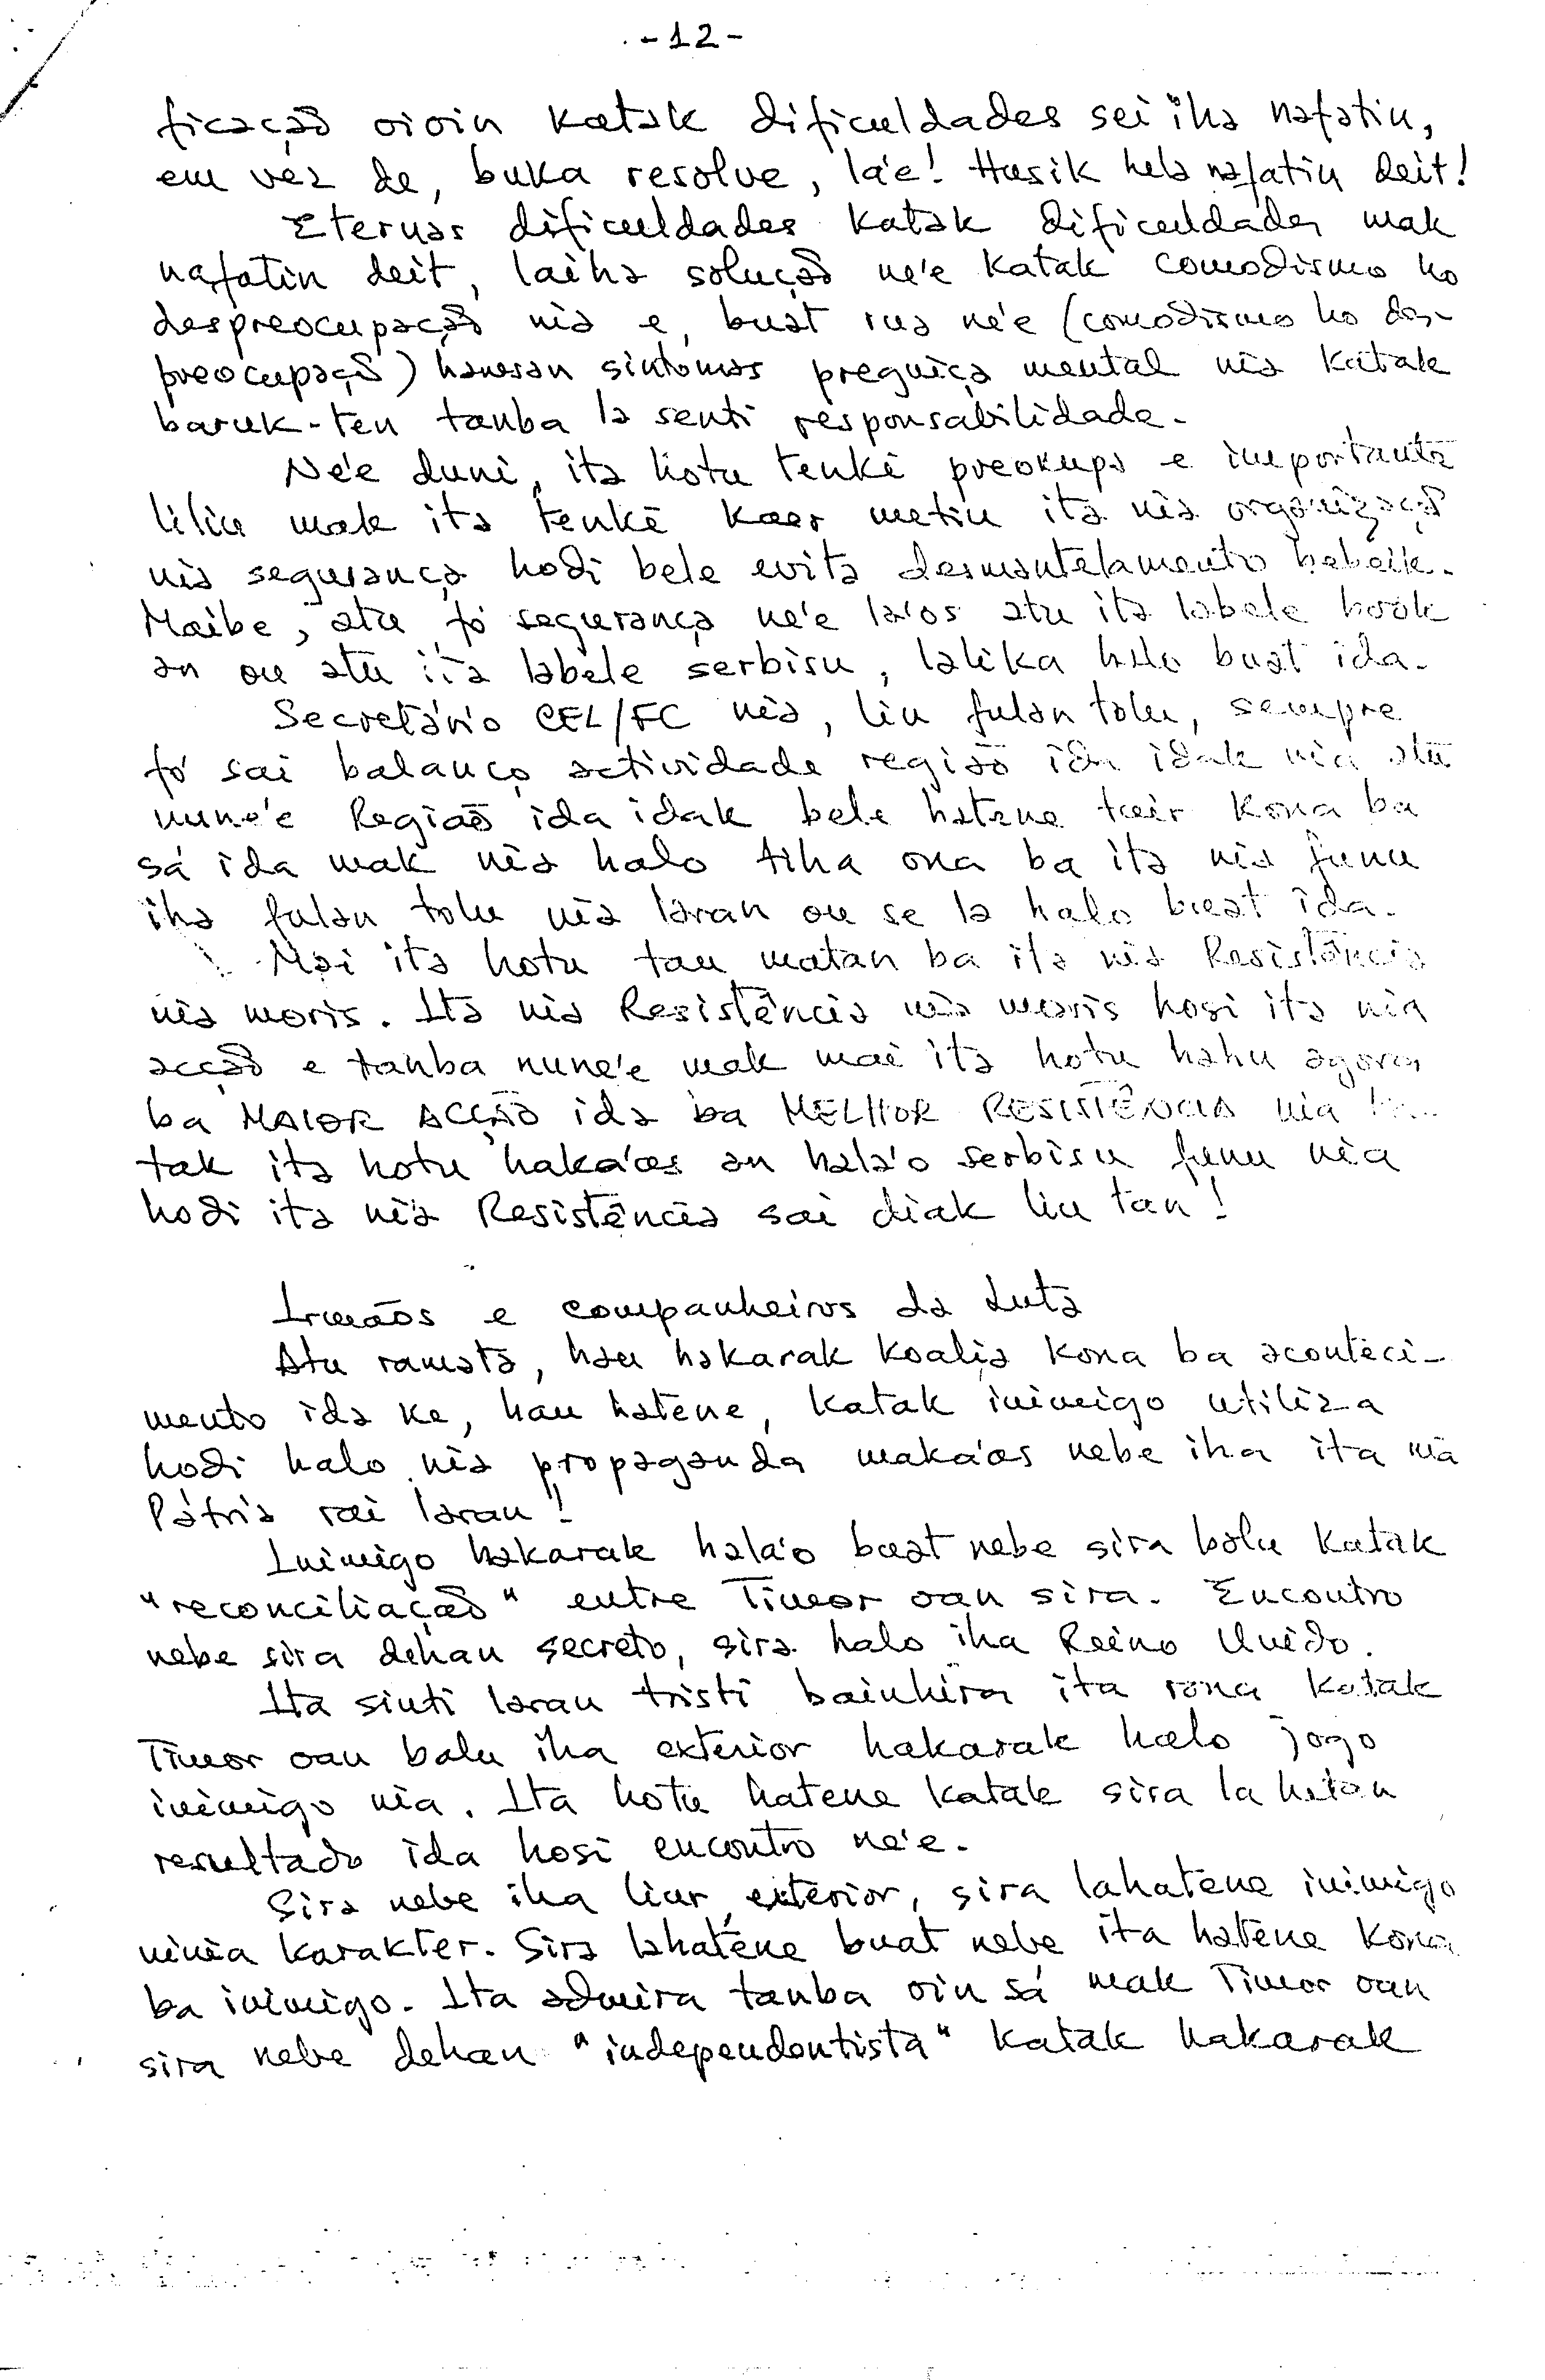 -12-
ficação oioin katak dificuldades sei iha nafatin,
em vez de, buka resolve, la'e! Husik hela nafatin deit!
Eternas dificuldades katak dificuldades mak
nafatin deit, laiha solução ne'e katak comodismo ho
despreocupação nia e, buat rua ne'e (comodismo ho des-
preocupação) hanesan sintomas preguiça mental nia katak
baruk-ten tanba la senti responsabilidade.
Ne'e duni, ita hotu tenkê preokupa e importante
liliu mak ita tenkê kaer metin ita nia organização
nia segurança hodi bele evita desmantelamento bebeik.
Maibe, atu fó segurança ne'e la'os atu ita labele book
an ou atu ita labele serbisu, lalika halo buat ida.
Secretário CEL/FC nia, liu fulan tolu, sempre
fó sai balanço actividade região ida idak nia atu
nune'e Região ida idak bele hatene tuir kona ba
sá ida mak nia halo tiha ona ba ita nia funu
iha fulan tolu nia laran ou se la halo buat ida.
Mai ita hotu tau matan ba ita nia Resistência
nia moris. Ita nia Resistência nia moris hosi ita nia
acção e tanba nune'e mak mai ita hotu hahu agora
ba MAIOR ACÇÃO ida ba MELHOR RESISTÊNCIA nia ka-
tak ita hotu haka'as an hala'o serbisu funu nia
hodi ita nia Resistência sai diak liu tan!
Irmãos e companheiros da Luta
Atu ramata, hau hakarak koalia kona ba aconteci-
mento ida ke, hau hatene, katak inimigo utiliza
hodi halo nia propaganda maka'as nebe iha ita nia
Pátria rai laran!
Inimigo hakarak hala'o buat nebe sira bolu katak
"reconciliação" entre Timor oan sira. Encontro
nebe sira dehan secreto, sira halo iha Reino Unido.
Ita sinti laran tristi bainhira ita rona katak
Timor oan balu iha exterior hakarak halo jogo
inimigo nia. Ita hotu hatene katak sira la hetan
resultado ida hosi encontro ne'e.
Sira nebe iha liur, exterior, sira lahatene inimigo
ninia karakter. Sira lahatene buat nebe ita hatene kona
ba inimigo. Ita admira tanba oin sá mak Timor oan
sira nebe dehan "independentista" katak hakarak